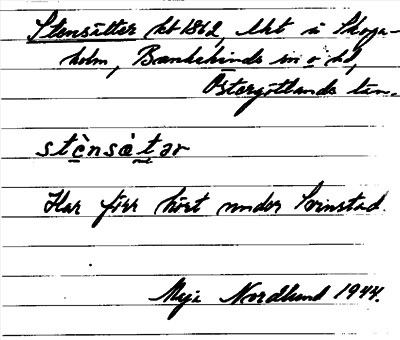 Stensätter kt 1862, lht u Skoga-
holm, Bankekinds sn o hd,
Östergötlands län.
stènsàtər
Har förr hört under Svinstad.
Maja Nordlund 1944.